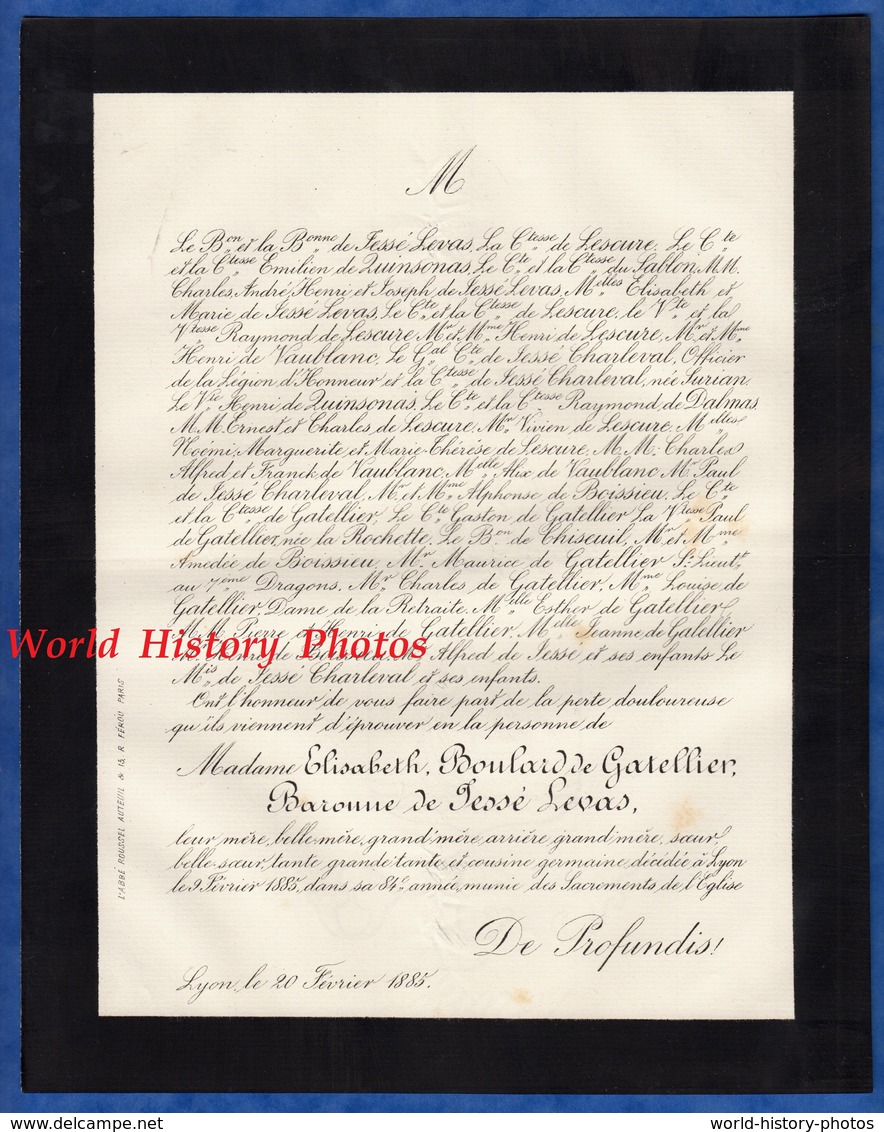 M
Le Bon et la Bonne de Jessé Levas, La Ctesse de Lescure, Le Cte
et la Ctesse Emilien de Quinsonas, Le Cte et la Ctesse du Sablon, M.M.
Charles, André, Henri et Joseph de Jessé Levas, Melles Elisabeth et
Marie de Jessé Levas, Le Cte et la Ctesse de Lescure, le Vte et la
Vtesse Raymond de Lescure, Mr et Mme Henri de Lescure, Mr et Mme
Henri de Vaublanc, Le Gal Cte de Jessé Charleval, Officier
de la Légion d'Honneur et la Ctesse de Jessé Charleval, née Surian,
Le Vte Henri de Quinsonas, Le Cte et la Ctesse Raymond de Dalmas,
M.M. Ernest et Charles de Lescure, Mr Vivien de Lescure, Melles
Noémi, Marguerite et Marie-Thérèse de Lescure, M.M. Charles
Alfred et Franck de Vaublanc, Melle Alix de Vaublanc, Mr Paul
de Jessé Charleval, Mr et Mme Alphonse de Boissieu, Le Cte
et la Ctesse de Gatellier, Le Cte Gaston de Gatellier, La Vtesse Paul
de Gatellier, née la Rochette, Le Bon de Chiseuil, Mr et Mme
Amédée de Boissieu, Mr Maurice de Gatellier St Lieutt
au 7eme Dragons, Mr Charles de Gatellier, Mme Louise de
Gatellier, Dame de la Retraite, Melle Esther de Gatellier
M.M. Pierre et Henri de Gatellier, Melle Jeanne de Gatellier
Alfred de Jessé et ses enfants Le
Mis de Jessé Charleval et ses enfants.
Ont l'honneur de vous faire part de la perte douloureuse
qu'ils viennent d'éprouver en la personne de
Madame Elisabeth, Boulard de Gatellier,
Baronne de Jessé Levas,
leur mère, belle-mère, grand'mère, arrière grand'mère, sœur,
belle-sœur, tante, grande tante et cousine germaine, décédée à Lyon
le 9 Février 1885, dans sa 84e année, munie des Sacrements de l'Eglise
De Profundis!
Lyon, le 20 Février 1885.
L'ABBÉ ROUSSEL AUTEUIL & 15, R. FÉROU PARIS
World History Photos
world-history-photos